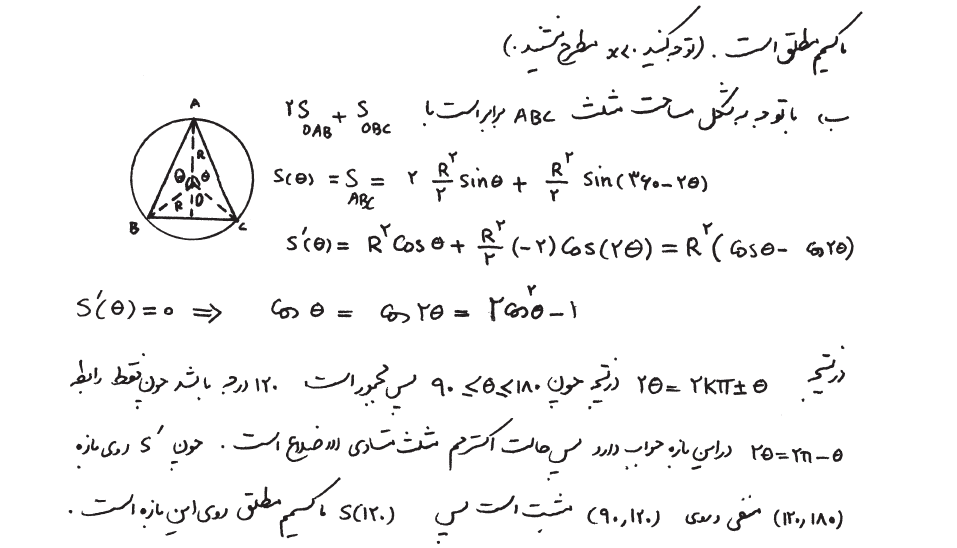 ماکسیمم مطلق است . (توجه کنید x<۰ مطرح نیست.)
ب) با توجه به شکل مساحت مثلث ABC برابر است با ۲S_OAB + S_OBC
A
R
θ θ
R O
B C
S(θ) = S_ABC = ۲ R^۲/۲ sinθ + R^۲/۲ sin(۳۶۰-۲θ)
S′(θ) = R^۲ Cosθ + R^۲/۲ (-۲) Cos(۲θ) = R^۲ (Cosθ - Cos۲θ)
S′(θ) = ۰ ⇒ Cos θ = Cos ۲θ = ۲Cos^۲θ - ۱
درنتیجه ۲θ = ۲Kπ ± θ درنتیجه چون ۹۰ ≤ θ ≤ ۱۸۰ پس مجبور است ۱۲۰ درجه باشد چون فقط رابطه
۲θ = ۲π - θ در این بازه جواب دارد پس حالت اکسترمم مثلث متساوی الاضلاع است . چون S′ روی بازه
(۱۲۰,۱۸۰) منفی و روی (۹۰,۱۲۰) مثبت است پس S(۱۲۰) ماکسیمم مطلق روی این بازه است .